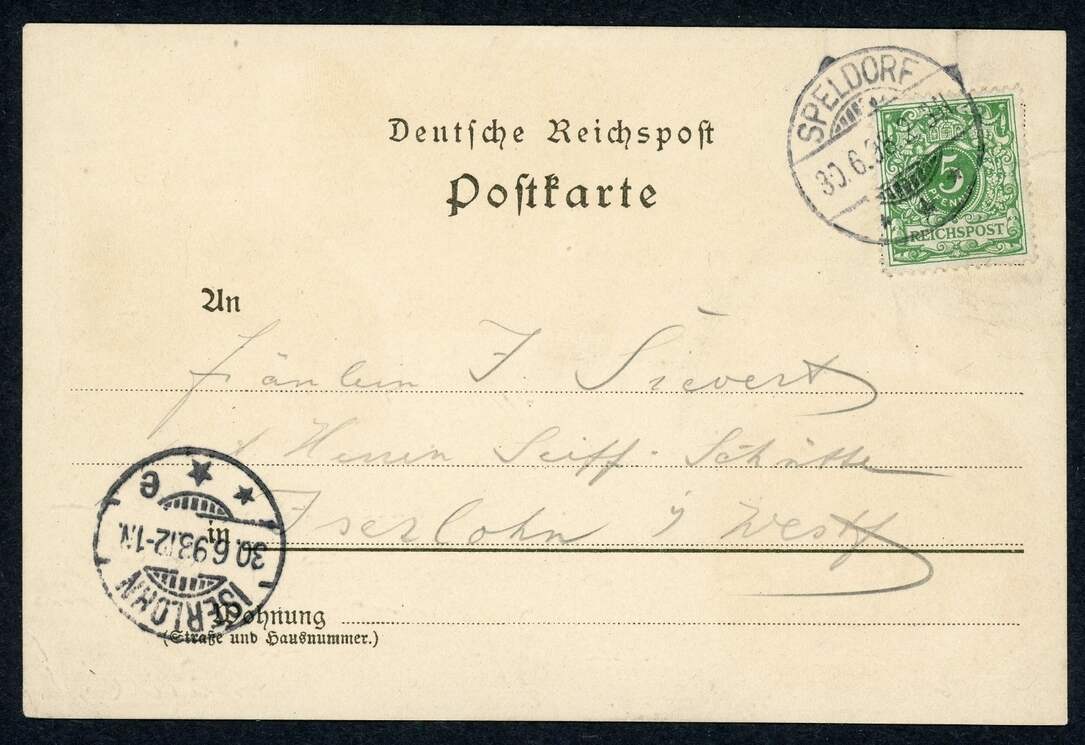 Deutsche Reichspost
Postkarte
SPELDORF
30.6.
5
PFENNIG
REICHSPOST
An
Fräulein J. Sievert
Herrn Seiff-Schütte
in Iserlohn i/ Westf
ISERLOHN
30.6.93.12-1.N.
e
Wohnung
(Straße und Hausnummer.)